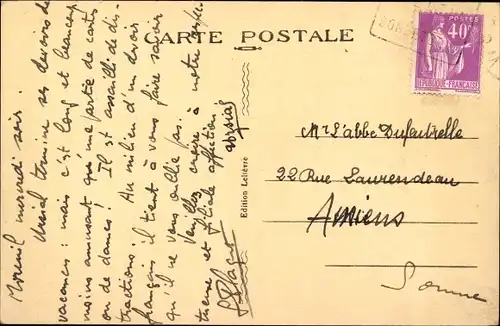 CARTE POSTALE
POSTES
40c
RÉPUBLIQUE FRANÇAISE
Moreuil mercredi soir.
Urcial termine ses devoirs de
vacances : mais c'est long et beaucoup
moins amusant qu'une partie de cartes
ou de dames ! Il est assailli de dis-
tractions ! Au milieu d'un devoir
français il tient à vous faire savoir
qu'il ne vous oublie pas.
Veuillez croire à notre
et filiale affection
Urcial
Edition Lelièvre
Mr L'abbé Dufautrelle
22 Rue Laurendeau
Amiens
Somme